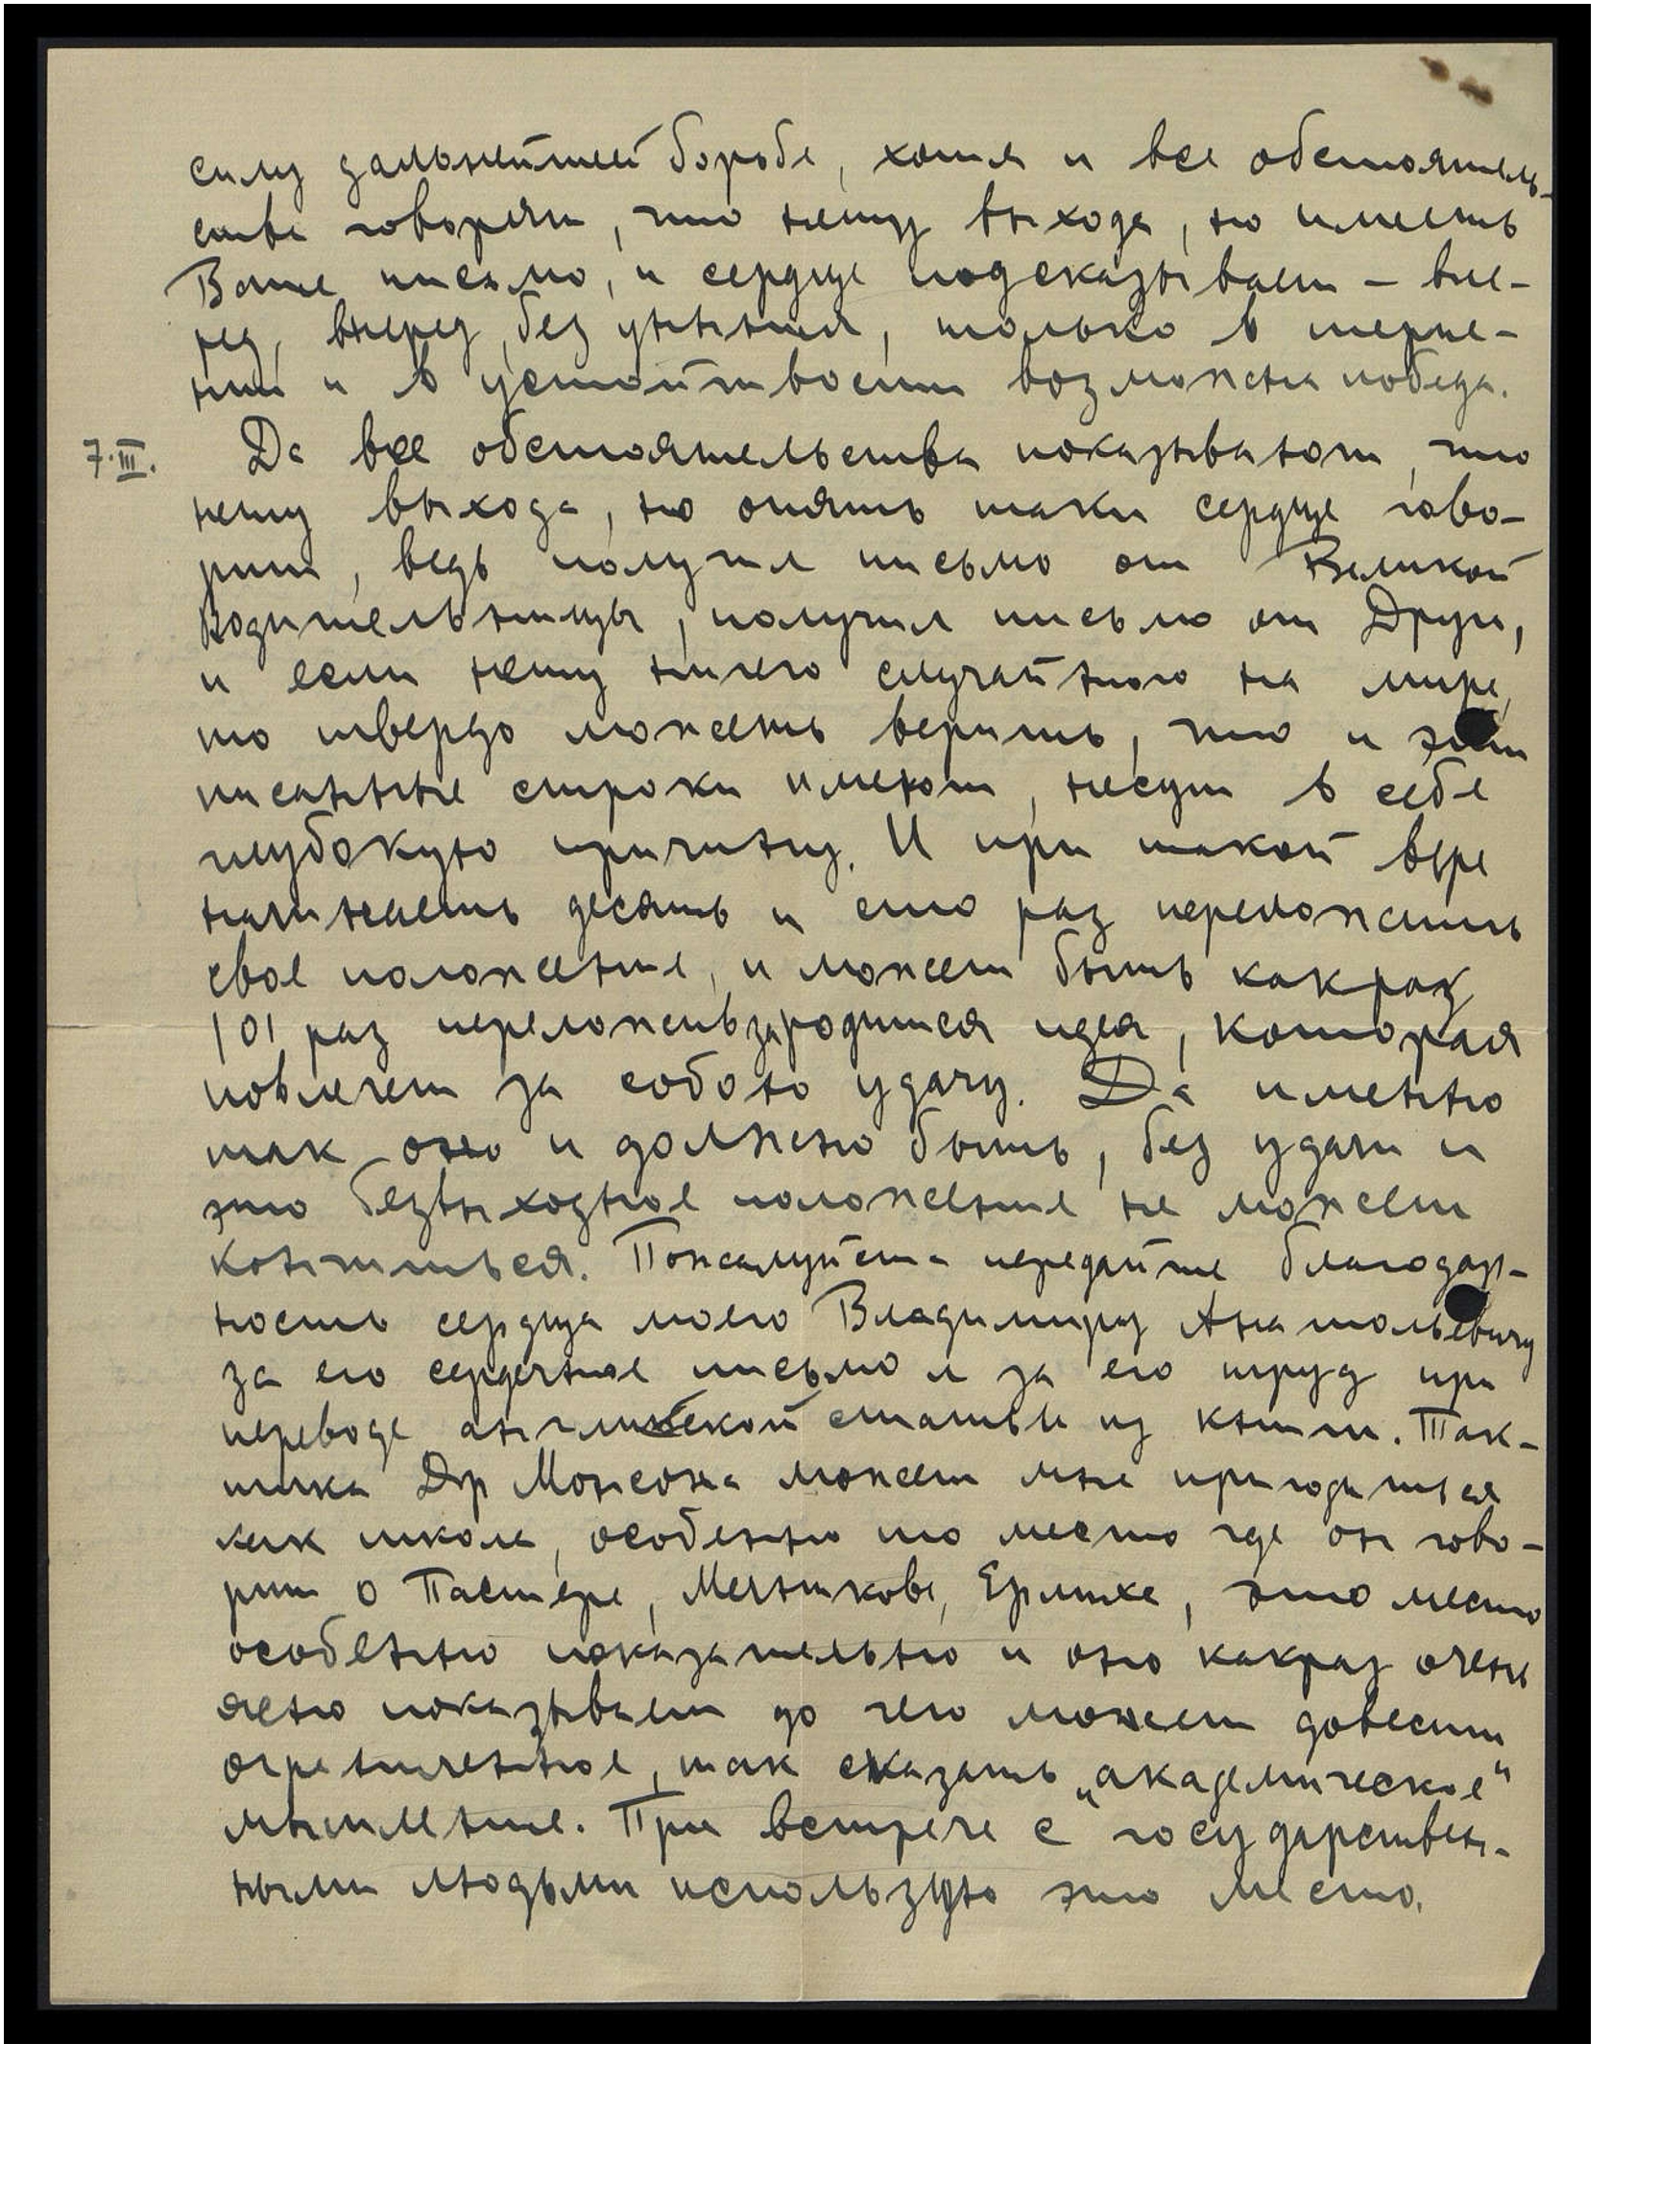 силу дальнейшей борьбе, хотя и все обстоятель-
ства говорят, что нету выхода, но имеешь
Ваше письмо, и сердце подсказывает – впе-
ред, вперед, без уныния, только в терпе-
нии и в устойчивости возможна победа.
7.III. Да все обстоятельства показывают, что
нету выхода, но опять таки сердце гово-
рит, ведь получил письмо от Великой
Водительницы, получил письмо от Друга,
и если нету ничего случайного на мире,
то твердо можешь верить, что и эти
писанные строки имеют, несут в себе
глубокую причину. И при такой вере
начинаешь десять и сто раз переложить
свое положение, и может быть как раз
101 раз переложив зародится идея, которая
повлечет за собою удачу. Да именно
так оно и должно быть, без удачи и
это безвыходное положение не может
кончиться. Пожалуйста передайте благодар-
ность сердца моего Владимиру Анатольевичу
за его сердечное письмо и за его труд при
переводе английской статьи из книги. Так-
тика Др Монсона может мне пригодится
как школа, особенно то место где он гово-
рит о Пастере, Мечникове, Ерлихе, это место
особенно показательно и оно какраз очень
ясно показывает до чего может довести
ограниченное, так сказать „академическое"
мышление. При встрече с государствен-
ными людьми использую это место.